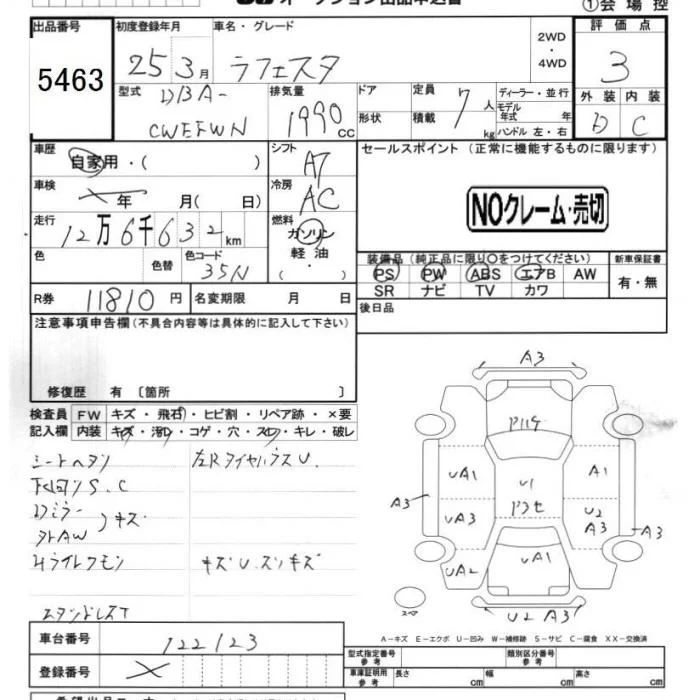 オークション出品申込書
①会場控
出品番号 5463
初度登録年月 25 3月
車名・グレード ラフェスタ
2WD・4WD
評価点 3
外装 D 内装 C
型式 DBA-CWEFWN
排気量 1990 cc
ドア 形状
定員 7人 積載 kg
ディーラー・並行
モデル年式 年
ハンドル 左・右
車歴 自家用・( )
シフト AT
セールスポイント (正常に機能するものに限ります)
NOクレーム・売切
車検 年 月( 日)
冷房 AC
走行 12万6千632km
燃料 ガソリン 軽油 ( ・ )
色 色替 色コード 35N
装備品 (純正品に限り○をつけてください) 新車保証書
PS PW ABS エアB AW 有・無
SR ナビ TV カワ
R券 11810円 名変期限 月 日
後日品
注意事項申告欄 (不具合内容等は具体的に記入して下さい)
修復歴 有 〔箇所 〕
検査員記入欄
FW キズ・飛石・ヒビ割・リペア跡・×要
内装 キズ・汚れ・コゲ・穴・スレ・キレ・破レ
シートヘタリ 左RタイヤハウスU.
下回りS.C
Dミラー
外AW キズ
Hライトクモリ キズU.スリキズ
A3
UA1 U1 A1
A3 UA3 U2 A3 A3
UA2 UA1
スペア U2 A3
A-キズ E-エクボ U-凹み W-補修跡 S-サビ C-腐食 XX-交換済
車台番号 122123
登録番号 ×
型式指定番号 参考 類別区分番号 参考
車庫証明用 参考 長さ cm 幅 cm 高さ cm